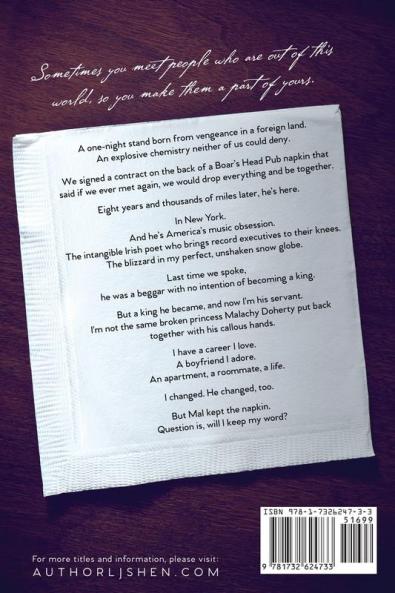 Sometimes you meet people who are out of this
world, so you make them a part of yours.
A one-night stand born from vengeance in a foreign land.
An explosive chemistry neither of us could deny.
We signed a contract on the back of a Boar's Head Pub napkin that
said if we ever met again, we would drop everything and be together.
Eight years and thousands of miles later, he's here.
In New York.
And he's America's music obsession.
The intangible Irish poet who brings record executives to their knees.
The blizzard in my perfect, unshaken snow globe.
Last time we spoke,
he was a beggar with no intention of becoming a king.
But a king he became, and now I'm his servant.
I'm not the same broken princess Malachy Doherty put back
together with his callous hands.
I have a career I love.
A boyfriend I adore.
An apartment, a roommate, a life.
I changed. He changed, too.
But Mal kept the napkin.
Question is, will I keep my word?
For more titles and information, please visit:
AUTHORLJSHEN.COM
ISBN 978-1-7326247-3-3
51699
9 781732 624733